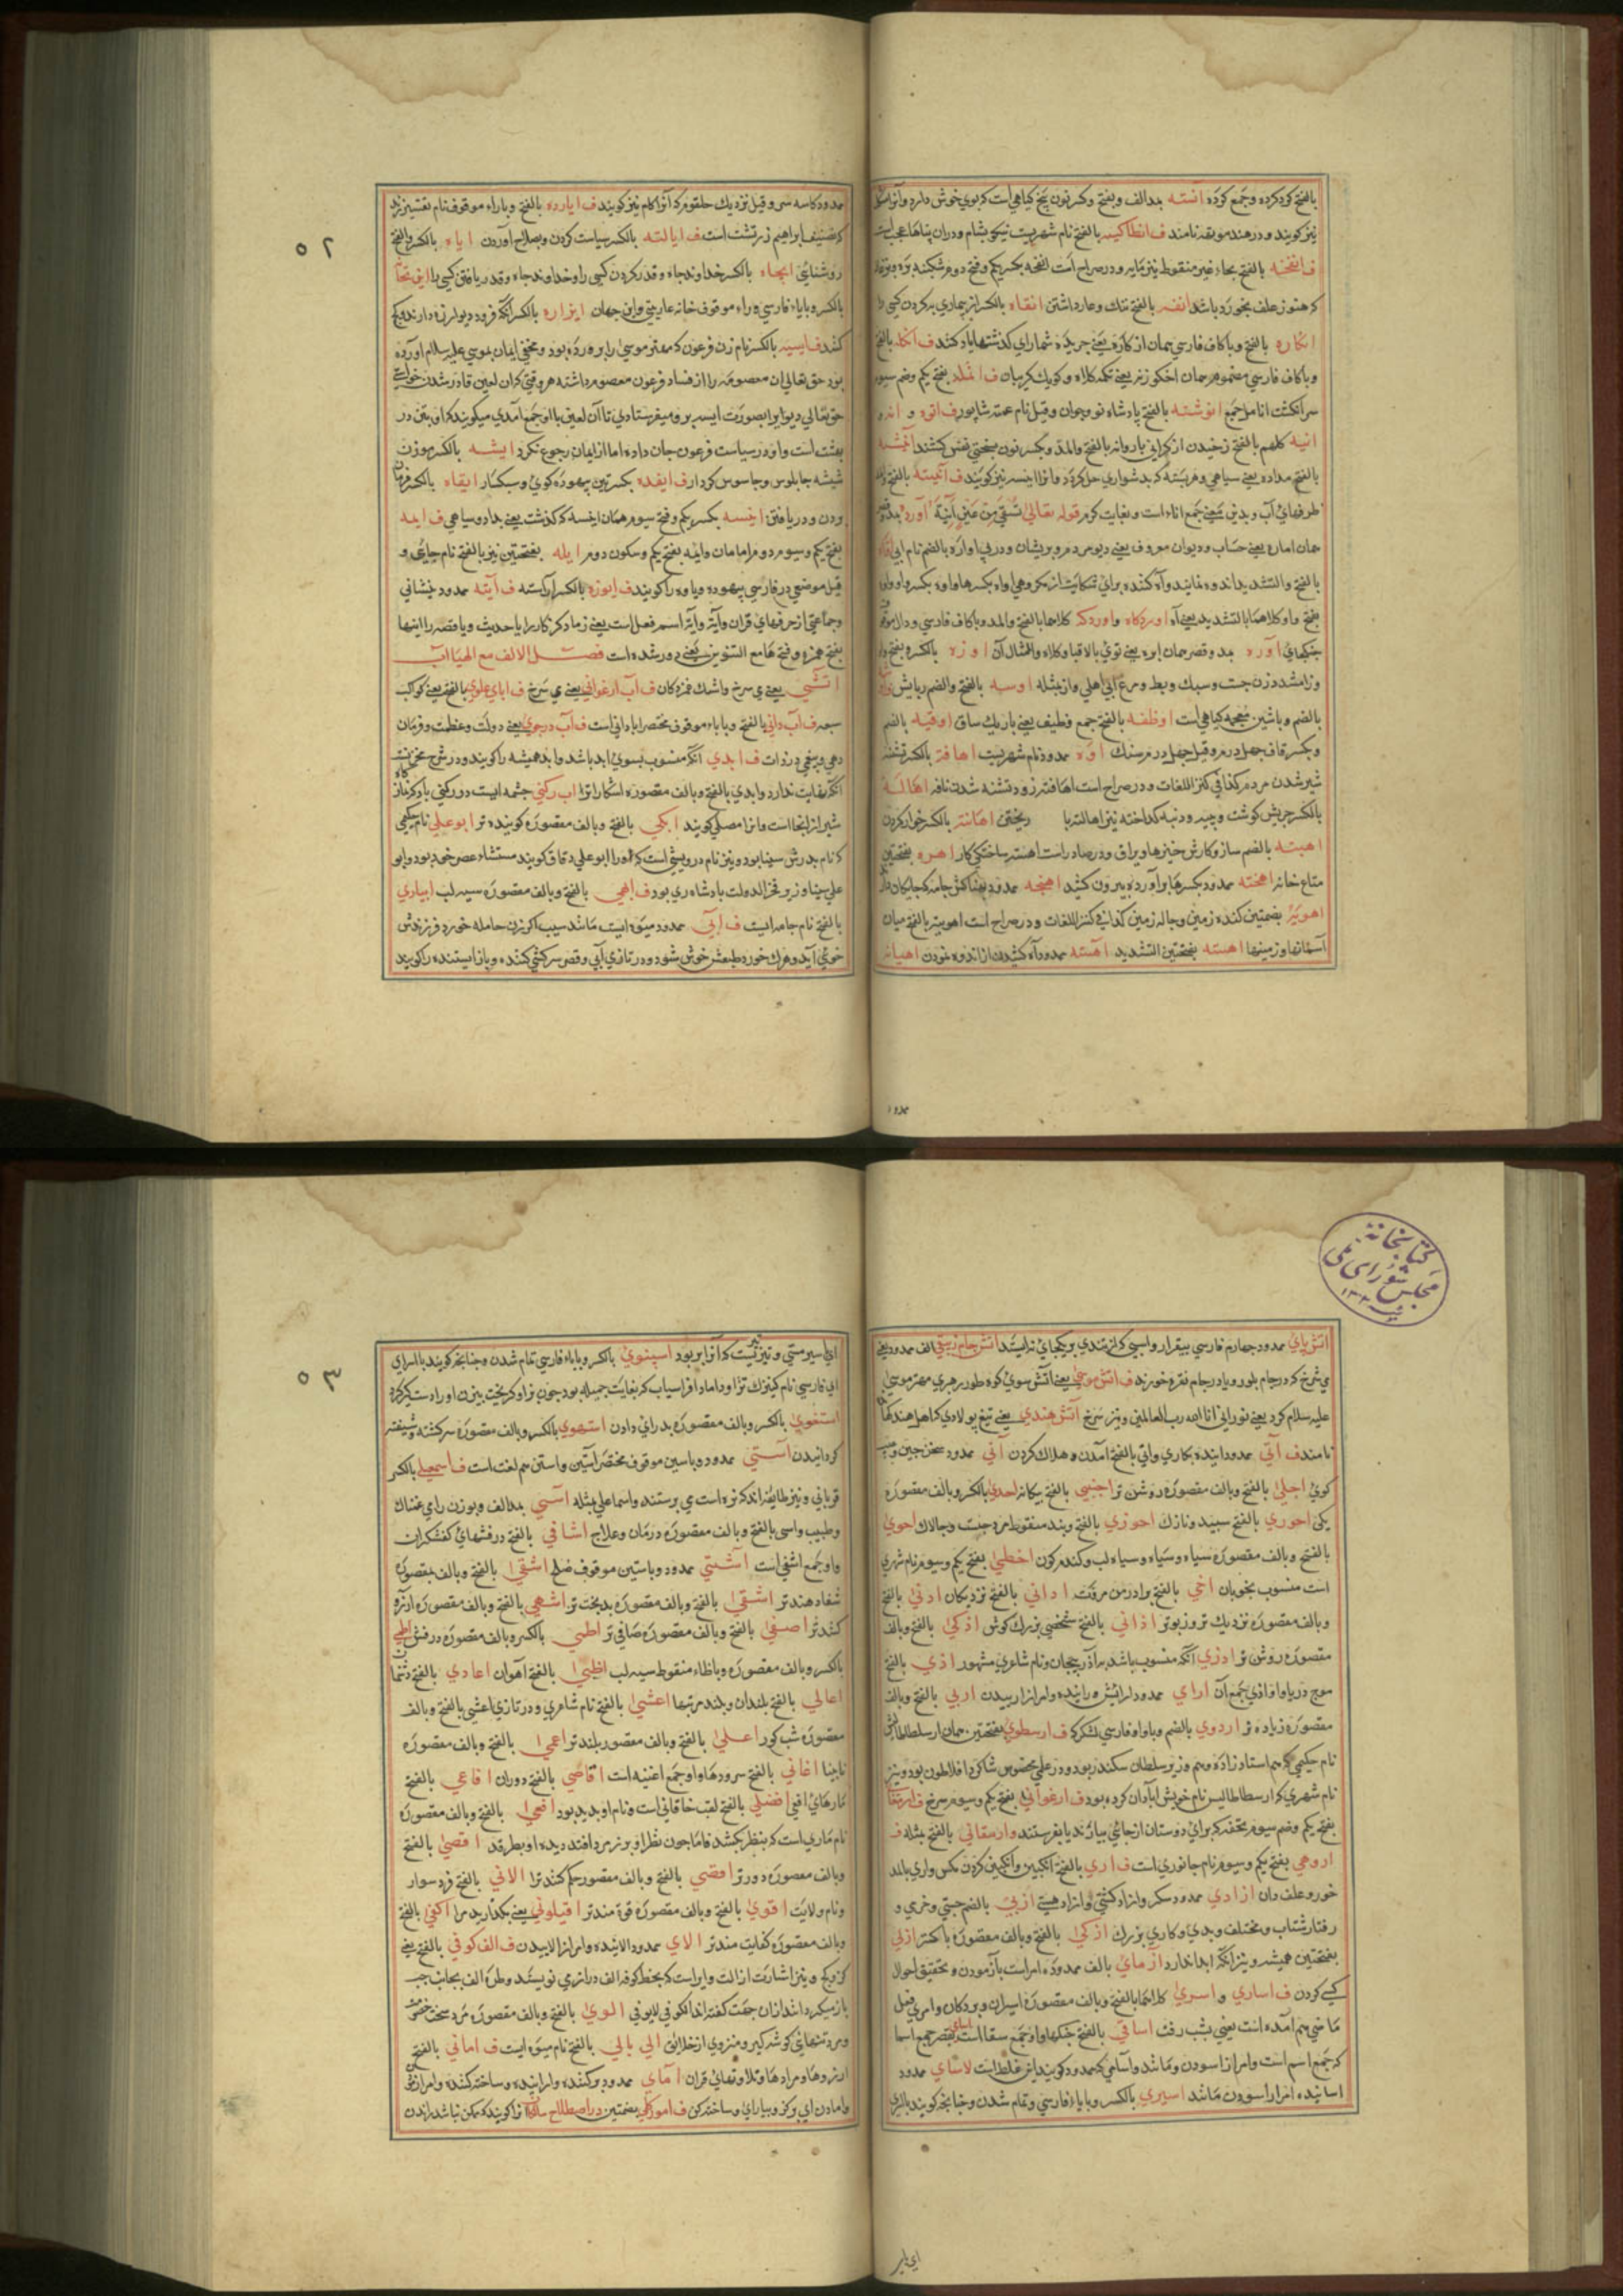 بالفتح کرد کرده و جمع کرده آنسته بمد الف و بفتح و کسر نون بیخ کیاهی است که بوی خوش دارد و آنرا
نیز کویند و در هند موتهه نامند ف انطاکیه بالفتح نام شهریست نیکو بشام و دران بناها عجب است
ف انفخه بالفتح بحاء غیر منقوط پنیر مایه و در صراح است انفحه بکسر یکم و فتح دوم شکنبه بره و بزغاله
که هنوز علف نخورده باشد انفه بالفتح ننک و عار داشتن انقاه بالکسر از بیماری به کردن کسی را
انکاره بالفتح و با کاف فارسی همان از کاره یعنی جریده شمار ای کذشتها یاد کنند ف انکله بالفتح
و با کاف فارسی مضموم همان اخکوزنه یعنی تکمه کلاه و کویک کریبان ف انمله بفتح یکم و ضم سیوم
سر انکشت انامل جمع انوشته بالفتح پادشاه نوجوان و قیل نام عمه شاپور
انیه کلهم بالفتح زخیدن از کرانی بار و انه بالفتح و المد و بکسر نون سختی نفس کشند
بالفتح مداده یعنی سیاهی و هر بسته که بدشواری حل کردد و انرا ایسه نیز کویند ف آنیته بالفتح
ظرفهای آب و بدین معنی جمع اناء است و بغایت کرم قوله تعالی تسقی من عین آنیة آورد
همان اماره یعنی حساب و دیوان معروف یعنی دیو مردم و پریشان و در پی اواره بالضم نام
بالفتح و التشدید اندوه نمایند و آه کننده برای شکایت از مکروهی اواه بکسر ها و اوه بکسر واو
بفتح واو کلاهما بالتشدید یعنی آه اوردکاه و اوردکه کلاهما بالفتح و المد و با کاف فارسی و دال موقوف
جنکهای آوره بمد و قصر همان ابره یعنی توی بالا قبا و کلاه و امثال آن اوزه بالکسر و بفتح واو
و زا مشدد زن چست و سبک و بط و مرغ آبی اهلی و از مثله اوسه بالفتح و الضم ربایش
بالضم و باشین معجمه کیاهی است اوظفه بالفتح جمع وظیف یعنی باریک ساق اوقیه بالضم
و بکسر قاف چهل درم و قیل چهل درم سنک اوه ممدود نام شهریست اهافه بالکسر تشنه
شیر شدن مردم کذا فی کنز اللغات و در صراح است اهافة زود تشنه شدن ناقه اهاله
بالکسر چربش کوشت و چیه و دنبه کداخته نیز اهالته با ریختن اهانته بالکسر خوار کردن
اهبته بالضم ساز و کارش چیزها و یراق و در صادر است اهبته ساختکی کار اهره بفتحتین
متاع خانه اهخته ممدود بکسر ها برآورده بیرون کشید اهنجه ممدود
اهویه بضمتین کنده زمین و چاله زمین کذا فی کنز اللغات و در صراح است اهویته بالفتح میان
آسمانها و زمینها اهسته بفتحتین التشدید آهسته ممدود آه کشیدن از اندوه نمودن اهیانه
ممدود

٥٢
ممدود کاسه سر و قیل نزدیک حلقوم که آنرا کام نیز کویند ف ایارده بالفتح و با راء موقوف نام تفسیر زند
که تصنیف ابراهیم زرتشت است ف ایالته بالکسر سیاست کردن و بصلاح آوردن ایاه بالکسر و الفتح
روشنائی ایجاه بالکسر خداوند جاه و قدر کردن کسی را و خداوند جاه و قدر یافتن کسی را
بالکسر و با یاء فارسی و راء موقوف خانه عاریتی و این جهان ایزاره بالکسر آنکه فرود دیوار زه دارند و کج
کنند ف ایسیه بالکسر نام زن فرعون که مهتر موسی را پرورده بود و مخفی ایمان بموسی علیه السلام آورده
بود حق تعالی آن معصومه را از فساد فرعون معصوم داشته هر وقتی که آن لعین قادر شدن خواستی
حق تعالی دیو را بصورت ایسیه برو میفرستادی تا آن لعین با او جمع آمدی میکویند که او بتن در
بهشت است و او در سیاست فرعون جان داده اما از ایمان رجوع نکرد ایشه بالکسر موزن
شیشه چابلوس و جاسوس کردار ف ایفده بکسرتین بیهوده کوی و سبکسار ایفاء بالکسر
ودن و دریافتن ایسه بکسر یکم و فتح سیوم همان ایسه که کذشت یعنی بداد و سیاهی ف ایمه
بفتح یکم و سیوم دوم امامان و ایمه بفتح یکم و سکون دوم ایله بفتحتین نیز بالفتح نام جایی و
قیل موضعی در فارسی بیهوده و یاوه را کویند ف ایوزه بالکسر آراسته ف آیته ممدود نشانی
و جماعتی از حرفهای قرآن و آیة و آیة اسم فعل است یعنی زیاد کن کار را یا حدیث و یا قصه را اینها
بفتح همزه و فتح ها مع التنوین یعنی دور شده است فصل الالف مع الیا آب
آتشی یعنی می سرخ و اشک غمزدکان ف آب ارغوانی یعنی می سرخ ف ابای علوی بالفتح یعنی کواکب
سبعه ف آب دانی بالفتح و با باء موقوف مختصر ابادانی است ف آب درجوی یعنی دولت و عظمت و فرمان
دهی و بیغمی در ذات ف ابدی آنکه منسوب بسوی ابد باشد و ابد همیشه را کویند و در شرح
آنکه نهایت ندارد و ابدی بالفتح و بالف مقصوره اشکارا ترا اب رکنی چشمه ایست دو رکنی باد کرده
شیراز آنجا است و انرا مصلی کویند ابکی بالفتح و بالف مقصوره کوینده تر ابوعلی نام حکیمی
که نام پدرش سینا بود و نیز نام درویشی است که او را ابو علی دقاق کویند مستشاء عصر خود بود و ابو
علی سینا وزیر فخر الدولت پادشاه ری بود ف ابهی بالفتح و بالف مقصوره سیه لب ابیاری
بالفتح نام جامه ایست ف آبی ممدود میوه ایست مانند سیب اکر زن حامله خورد فرزندش
خوی آید و هرک خورد طبعش خوش شود و در تازی آبی و قصر سرکشی کننده و باز ایستنده را کویند

کتابخانه
مجلس شورای ملی
اتش پای ممدود چهارم فارسی بیقرار و اسپی که از تندی بر یکجای نایستد اتش جام زیبقی الف ممدود یعنی
می سرخ که در جام بلور و یا در جام نقره خورند ف اتش موسی یعنی آتش سوی کوه طور رهبری مهتر موسی
علیه السلام کرد یعنی نور انی انا الله رب العالمین و نیز سرخ آتش هندی یعنی تیغ پولادی که اهل هند کتارا
نامند ف آتی ممدود اینده بکاری و اتی بالفتح آمدن و هلاک کردن آنی ممدود سخن چین و
کوی اجلی بالفتح و بالف مقصوره روشن تر اجنبی بالفتح بیکانه احدی بالکسر و بالف مقصوره
یکی احوری بالفتح سپید و نازک احوزی بالفتح و بند منقوط مرد چست و چالاک احوی
بالفتح و بالف مقصوره سیاه و سیاه و سیاه لب و کندم کون اخطی بفتح یکم و سیوم نام شهری
است منسوب بخوبان اخی بالفتح برادر من مروت ادانی بالفتح نزدیکان ادنی بالفتح
و بالف مقصوره نزدیک تر و زبون تر اذانی بالفتح شخصی بزرک کوش اذکی بالفتح و بالف
مقصوره روشن تر اذری آنکه منسوب باشد به آذربیجان و نام شاعری مشهور اذی بالفتح
موج دریا و اواذی جمع آن ارای ممدود ارایش و راینده و امر از اراییدن اربی بالفتح و بالف
مقصوره زیاده تر اردوی بالضم و با واو فارسی لشکر که ف ارسطوی بفتحتین همان ارسطاطالیس
نام حکیمی که هم استاد زاده و هم وزیر سلطان سکندر بود و در علمی مخصوص شاکرد افلاطون بود و نیز
نام شهری که ارسطاطالیس نام خویش آبادان کرده بود ف ارغوانی بفتح یکم و سیوم سرخ
بفتح یکم و ضم سیوم تحفه که برای دوستان از جائی بیارند یا بفرستند و ارمقانی بالفتح مثله ف
اروهی بفتح یکم و سیوم نام جانوری است ف اری بالفتح انکبین و انکبین کردن مکس و اری بالمد
خور و علف دان ازادی ممدود سکر و ازاد کشتی و ازاد هستی ازبی بالضم چستی و خری و
رفتار شتاب و مختلف و بدی و کاری بزرک ازکی بالفتح و بالف مقصوره پاکتر ازلی
بفتحتین همیشه و نیز آنکه ابدا ندارد آزمای بالف ممدوده امر است بآزمودن و تحقیق احوال
کسی کردن ف اساری و اسری کلاهما بالفتح و بالف مقصوره اسیران و بردکان و اسری فعل
ماضی هم آمده است یعنی بشب رفت اساقی بالفتح خیکها و او جمع سقا است اسامی بقصر جمع اسما
که جمع اسم است و امر از اسودن و مانند و آسامی که ممدود کویند این غلط است لاسای ممدود
اساینده امر از اسودن مانند اسپری بالکسر و با یاء فارسی و تمام شدن و چنانچه کویند بالری
ای بار

٥٣
ای اسیر مستی و تیز نیست که آنرا بر بود اسپنوی بالکسر و با باء فارسی تمام شدن و چنانچه کویند با اسرای
ای فارسی نام کنیزک تژاو داماد افراسیاب که بغایت جمیله بود چون تژاو کریخت بیژن او را دستکیر کرد
استغوی بالکسر و بالف مقصوره بد رائ دادن استهوی بالکسر و بالف مقصوره سرکشته و شیفته
کردانیدن آستی ممدود و باسین موقوف مختصر آستین و استن هم لغت است ف اسمعیلی بالکسر
قربانی و نیز طایفه اند که نره است می پرستند و اسماعلی مثله آسی بمد الف و بوزن رامی غمناک
و طبیب و اسی بالفتح و بالف مقصوره درمان و علاج اشافی بالفتح درفشهای کفشکران
و او جمع اشفی است آشتی ممدود و باشین موقوف صلح اشفی بالفتح و بالف مقصوره
شفا دهنده تر اشقی بالفتح و بالف مقصوره بدبخت تر اشهی بالفتح و بالف مقصوره آرزو
کننده تر اصفی بالفتح و بالف مقصوره صافی تر اطبی بالکسر و بالف مقصوره درفش
بالکسر و بالف مقصوره و باظاء منقوط سیه لب اظبی بالفتح آهوان اعادی بالفتح دشمنان
اعالی بالفتح بلندان و بلند مرتبها اعشی بالفتح نام شاعری و در تازی اعشی بالفتح و بالف
مقصوره شب کور اعلی بالفتح و بالف مقصور بلند تر اعمی بالفتح و بالف مقصوره
نابینا اغانی بالفتح سرودها و او جمع اغنیه است اقاصی بالفتح دوران افاعی بالفتح
مارهای افعی افضلی بالفتح لقب خاقانی است و نام او بدیل بود افعی بالفتح و بالف مقصوره
نام ماری است که بنظر بکشد فاما چون نظر او بر زمرد افتد دیده او بطرقد اقصی بالفتح
و بالف مقصوره دور تر اقضی بالفتح و بالف مقصور حکم کننده تر الانی بالفتح فرد سوار
و نام ولایت اقوی بالفتح و بالف مقصوره قوة مند تر اقیلونی یعنی بکذارید مرا اکفی بالفتح
و بالف مقصوره کفایت مند تر الای ممدود الاینده و امر از الاییدن ف الف کوفی بالفتح یعنی
کژ و کج و نیز اشارت از الت و ایر است که بخط کوفه الف دراز می نویسند و طره الف بجانب چپ
باز میکردانند ازان جفت کفته اند الکوفی لایوفی الوی بالفتح و بالف مقصوره مرد سخت خصومت
و مرد تنهای کوشه کیر و منزوی از خلایق الی بالی بالفتح نام میوه ایست ف امانی بالفتح
ارزوها و مرادها و تلاوتهای قرآن آمای ممدود پر کننده و اراینده و ساخته کننده و امر از
و امادن ای پر کن و بیارای و ساخته کن ف اموزکلی بضمتین در اصطلاح سالکان